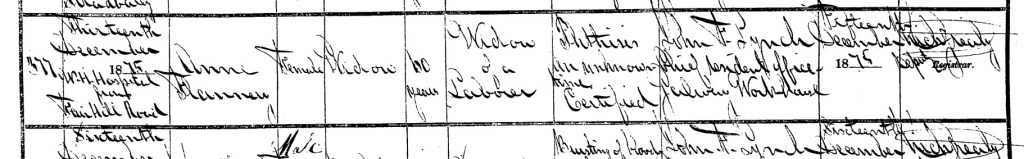 Thirteenth
December
377
1875
W.H. Hospital
from
Fair Hill Road
Anne
Flannery
Female
Widow
60
years
Widow
of a
Laborer
Phthisis
an unknown
time
Certified
John F. Lynch
Chief resident officer
Galway Workhouse
Fifteenth
December
1875
Registrar.
Sixteenth
Male
Bursting of blood
John F. Lynch
Sixteenth
December